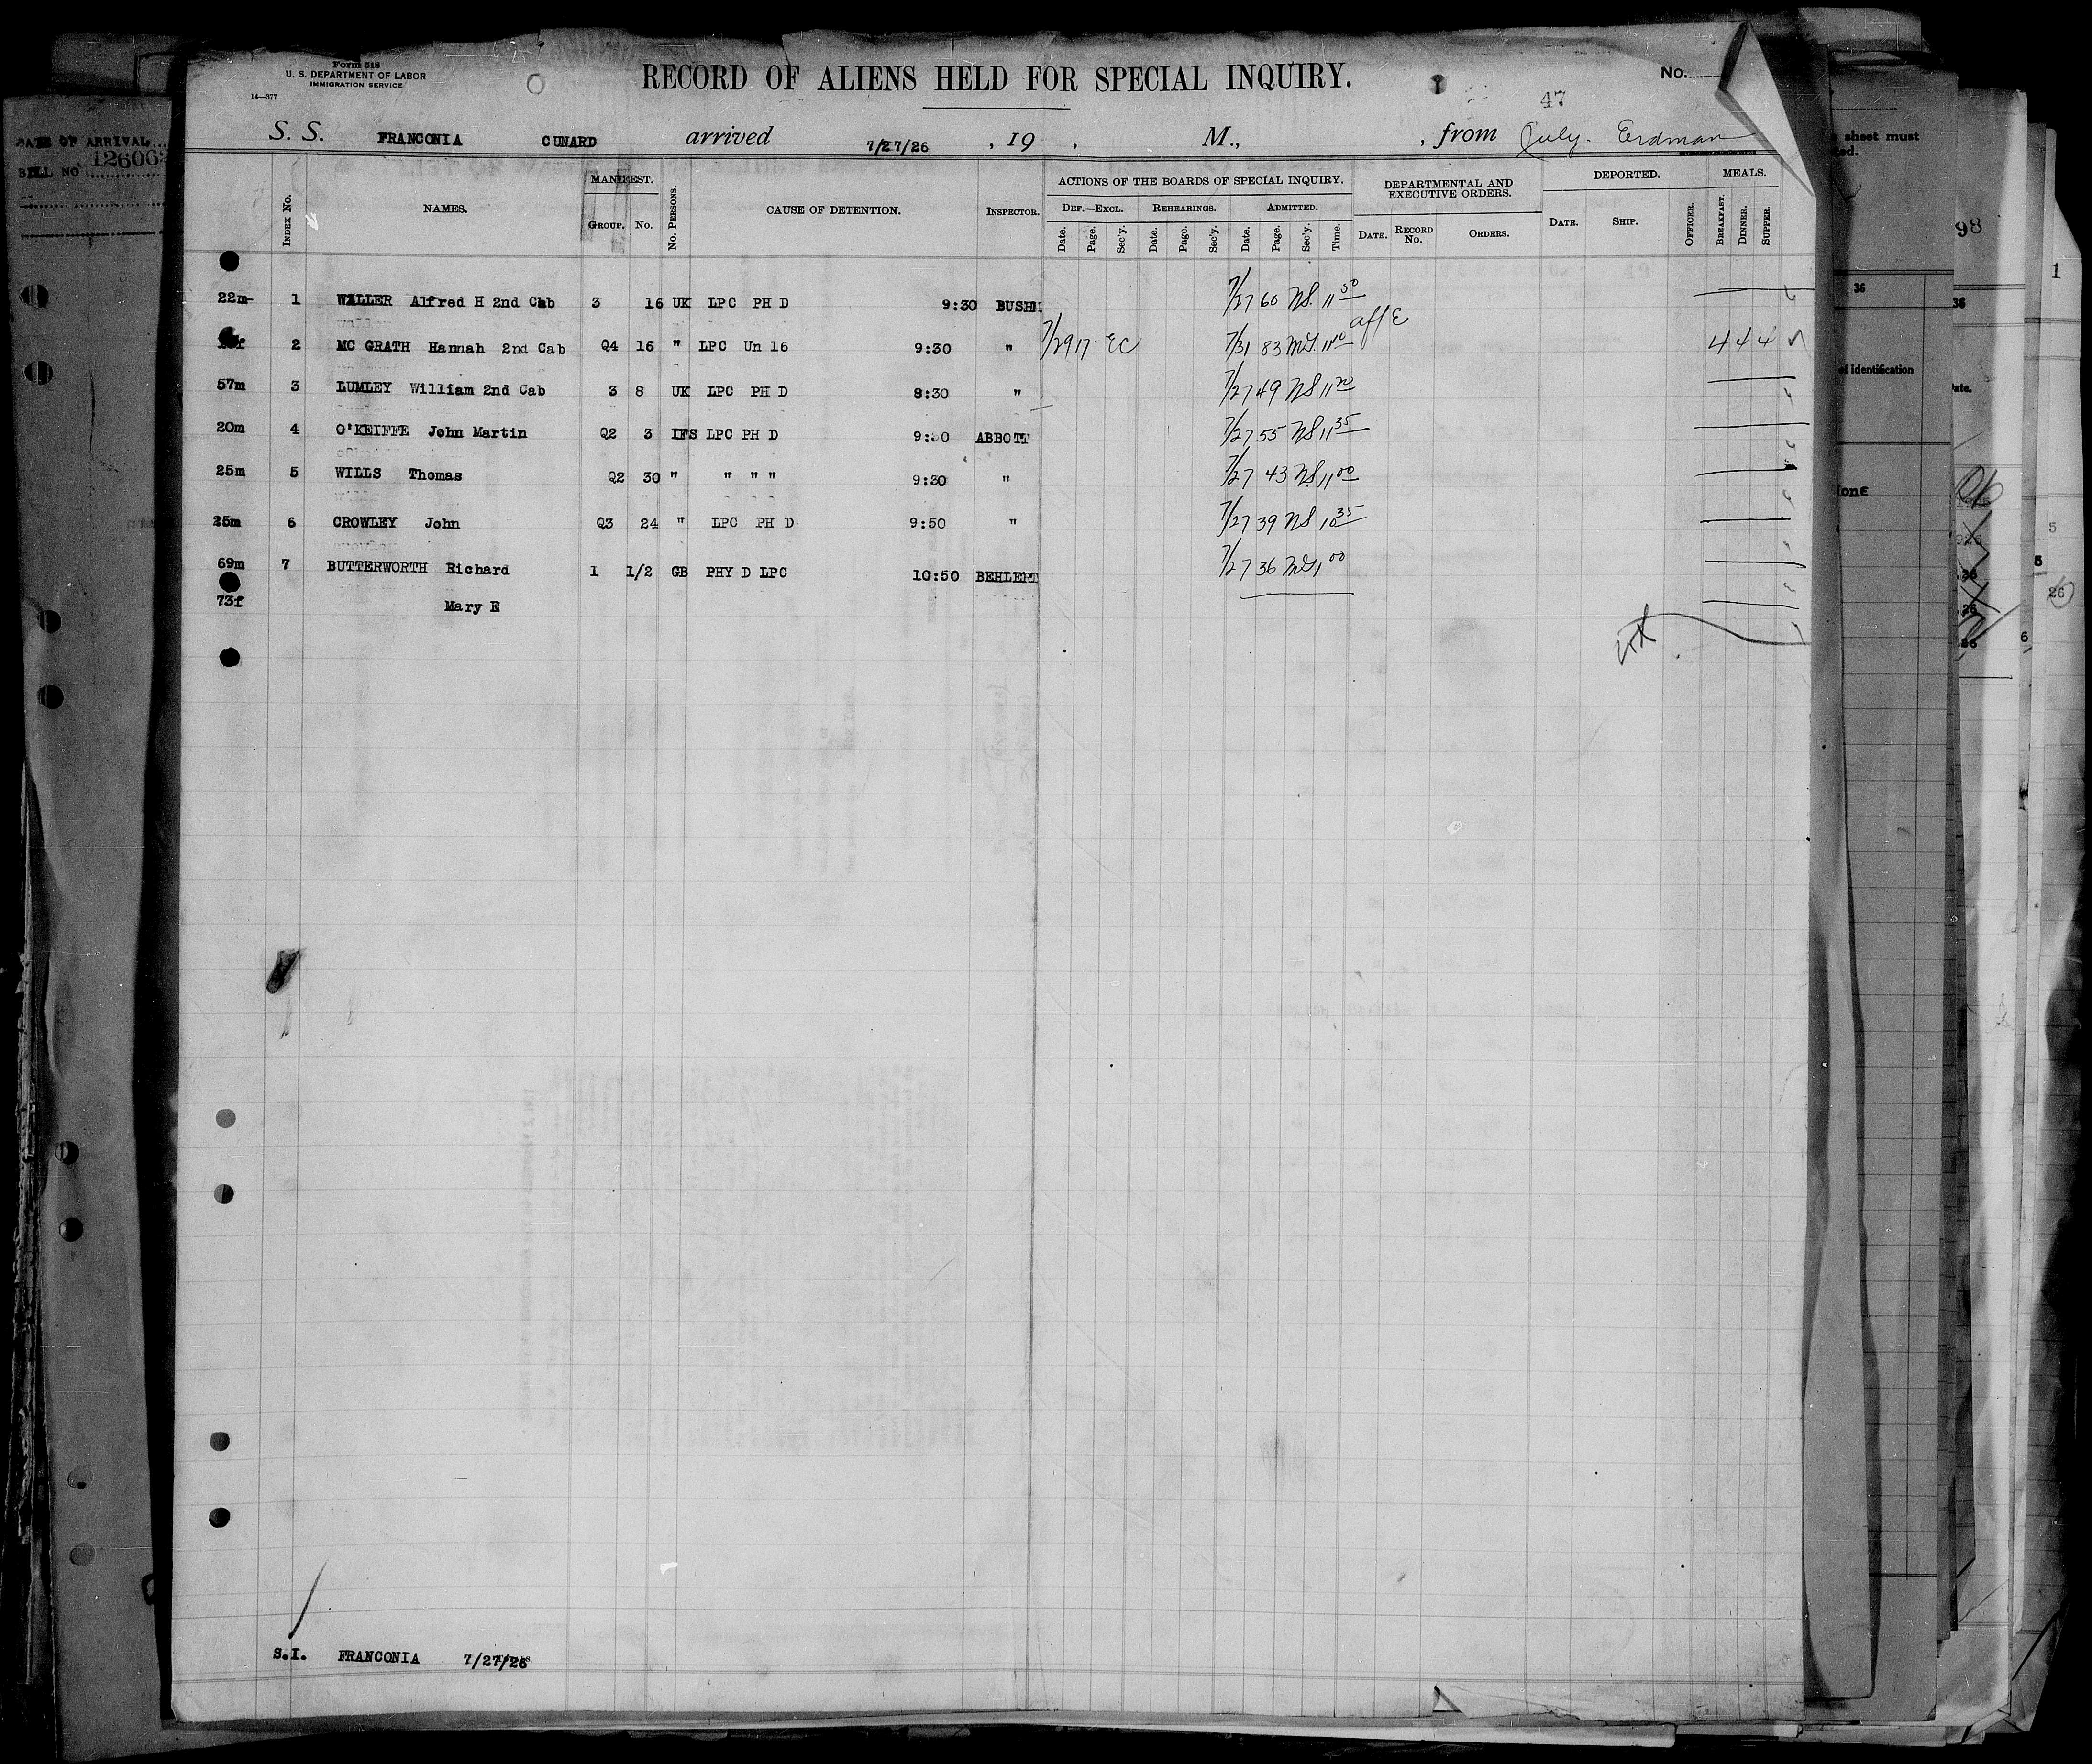 Form 518
U. S. DEPARTMENT OF LABOR
IMMIGRATION SERVICE
14—377
RECORD OF ALIENS HELD FOR SPECIAL INQUIRY.
No.
47
S. S. FRANCONIA CUNARD arrived 7/27/26 , 19 , M., , from July. Erdman
INDEX No. NAMES. MANIFEST. GROUP. No. No. PERSONS. CAUSE OF DETENTION. INSPECTOR. ACTIONS OF THE BOARDS OF SPECIAL INQUIRY. DEPARTMENTAL AND EXECUTIVE ORDERS. DEPORTED. MEALS.
DEF.—EXCL. REHEARINGS. ADMITTED.
Date. Page. Sec'y. Date. Page. Sec'y. Date. Page. Sec'y. Time. DATE. RECORD No. ORDERS. DATE. SHIP. OFFICER. BREAKFAST. DINNER. SUPPER.
22m 1 WALLER Alfred H 2nd Cab 3 16 UK LPC PH D 9:30 BUSH 7/27 60 NS. 11 50
2 MC GRATH Hannah 2nd Cab Q4 16 " LPC Un 16 9:30 " 7/29 17 EC 7/31 83 11 40 aff E 4 4 4
57m 3 LUMLEY William 2nd Cab 3 8 UK LPC PH D 9:30 " 7/27 49 NS 11 20
20m 4 O'KEIFFE John Martin Q2 3 IFS LPC PH D 9:30 ABBOTT 7/27 55 NS 11 35
25m 5 WILLS Thomas Q2 30 " " " " 9:30 " 7/27 43 NS 11 00
25m 6 CROWLEY John Q3 24 " LPC PH D 9:50 " 7/27 39 NS 10 35
69m 7 BUTTERWORTH Richard 1 1/2 GB PHY D LPC 10:50 BEHLERT 7/27 36 1 00
73f Mary E
S.I. FRANCONIA 7/27/26
DATE OF ARRIVAL
BILL NO
sheet must
98
1
36
36
of identification
5
5
26
6